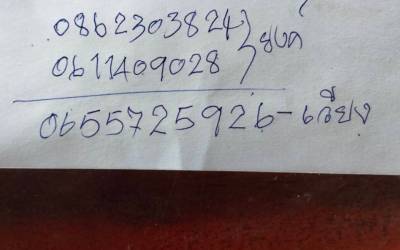 0862303824
0611409028 } ยงค์
0655725926-เวียง